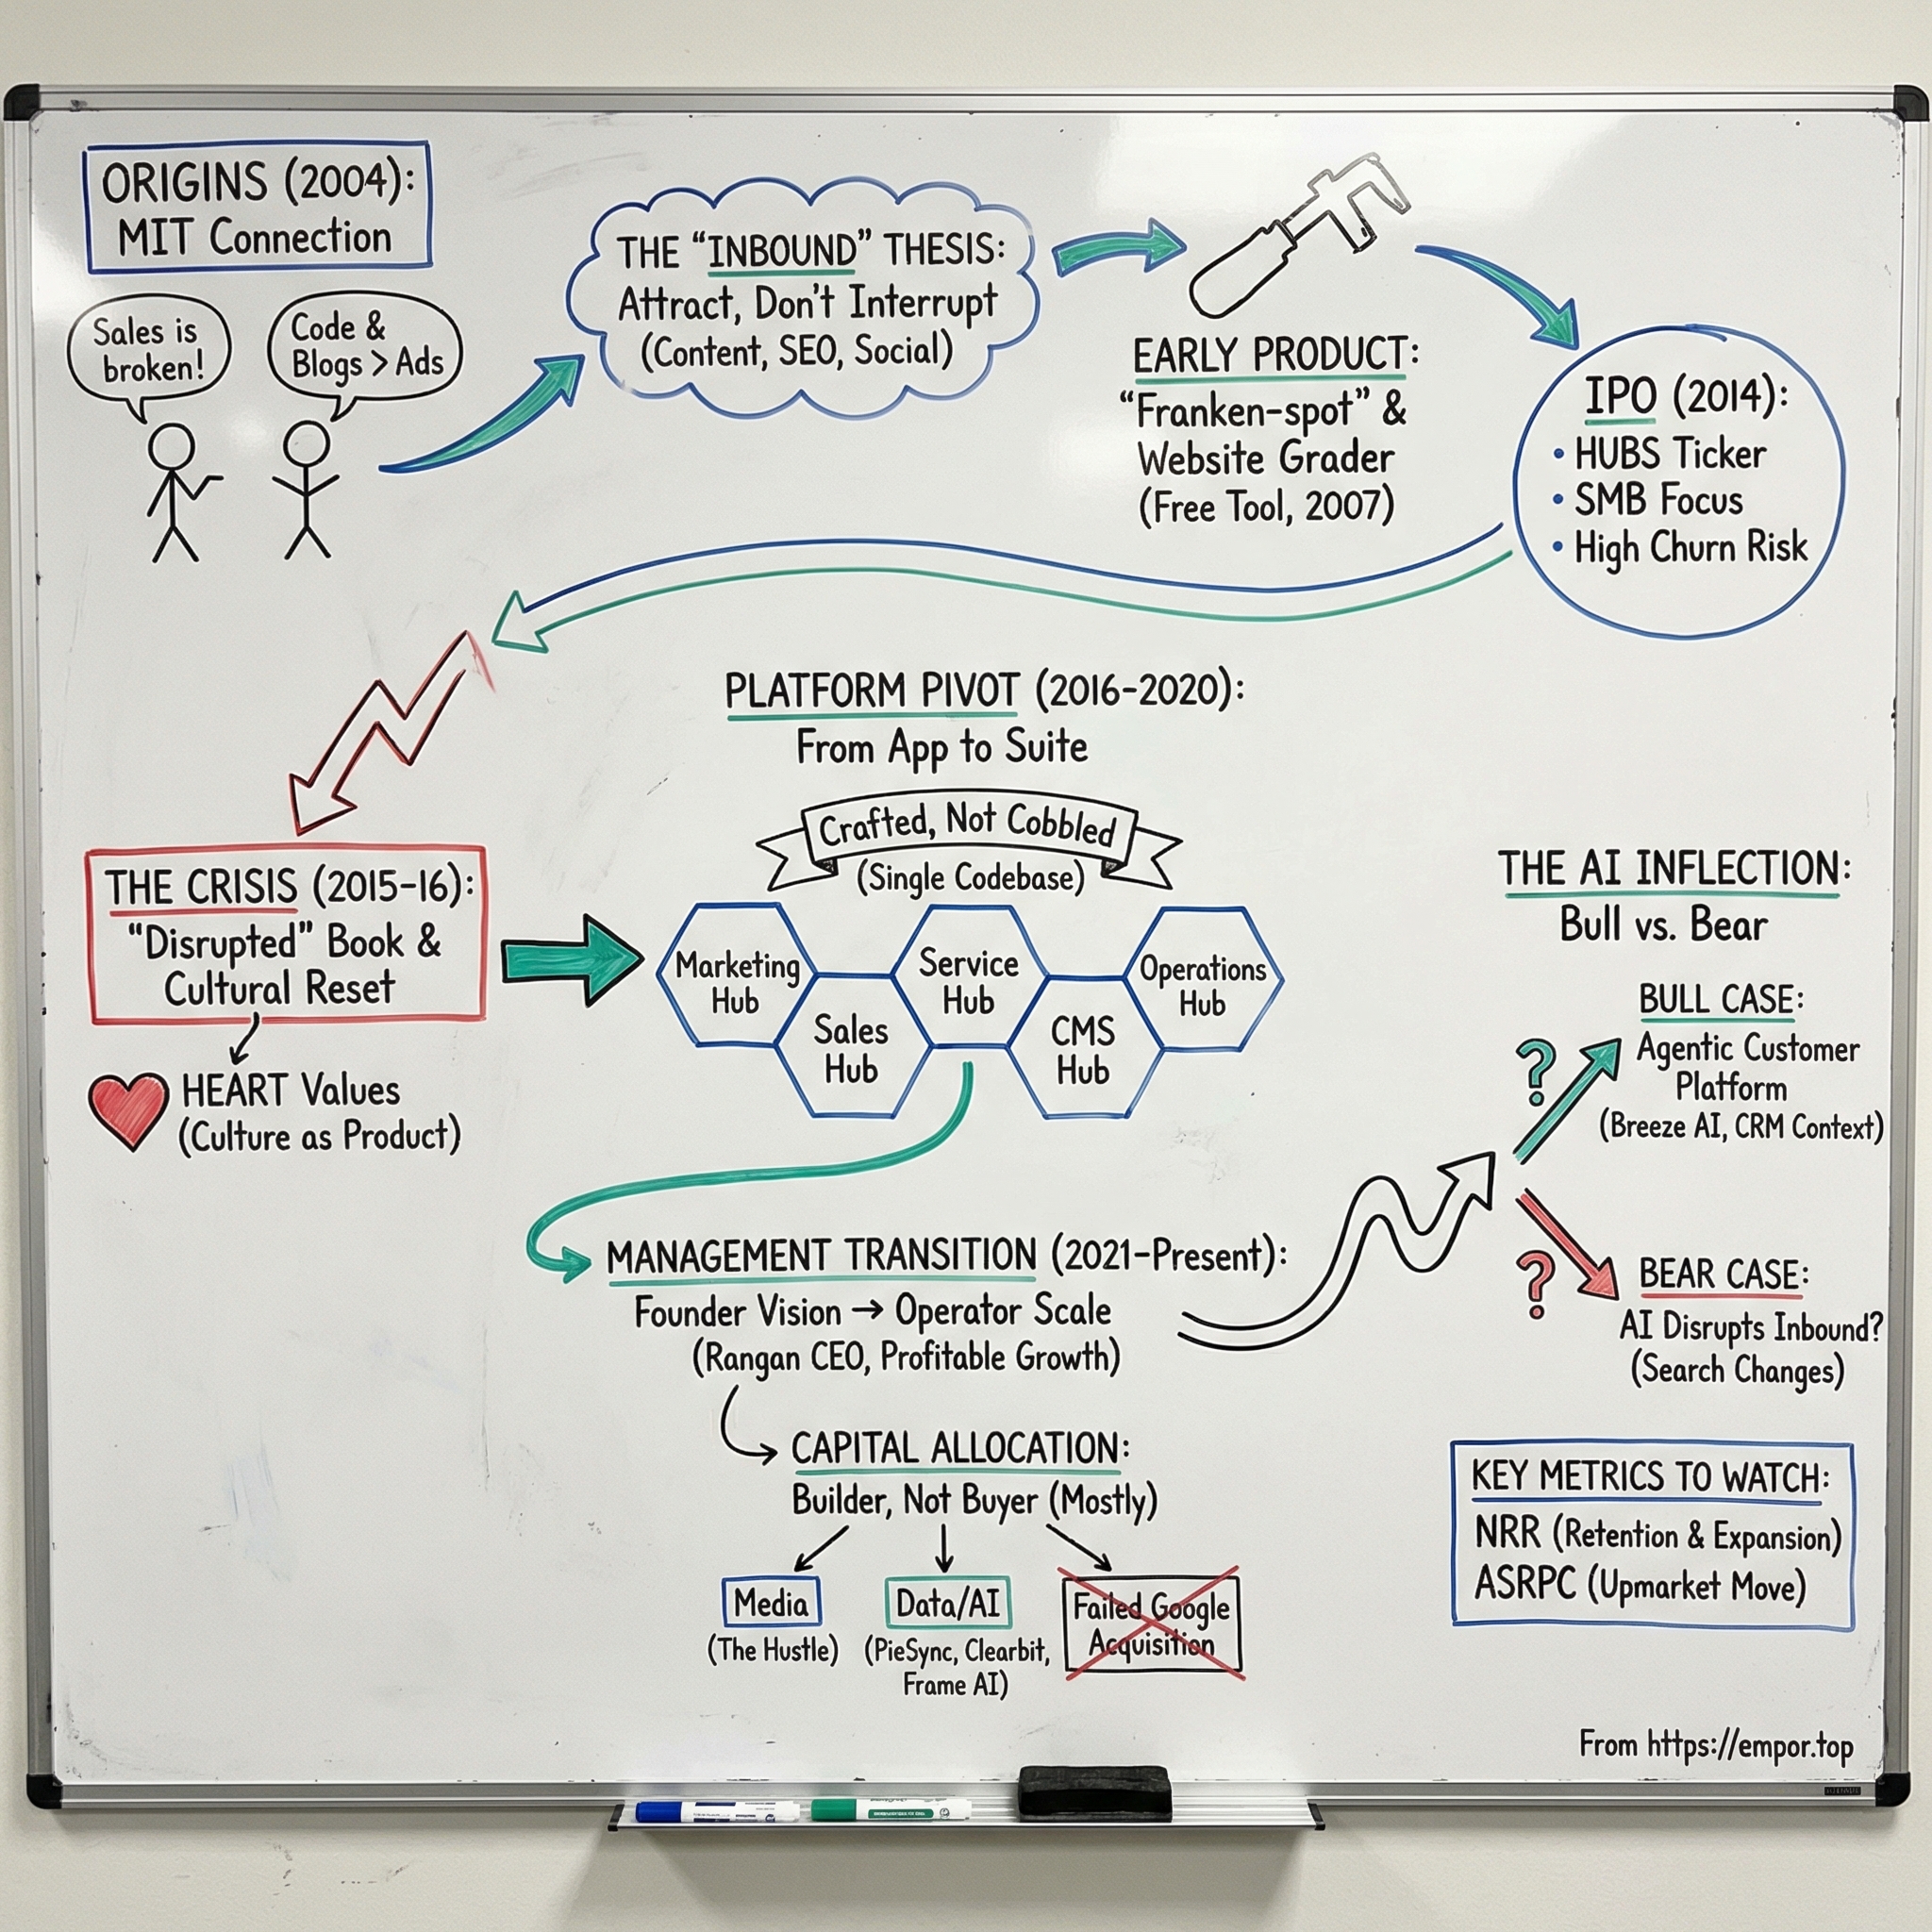 ORIGINS (2004):
MIT Connection
Sales is
broken!
Code &
Blogs > Ads
THE “INBOUND” THESIS:
Attract, Don't Interrupt
(Content, SEO, Social)
EARLY PRODUCT:
“Franken-spot” &
Website Grader
(Free Tool, 2007)
IPO (2014):
• HUBS Ticker
• SMB Focus
• High Churn Risk
THE CRISIS (2015-16):
“Disrupted” Book &
Cultural Reset
HEART Values
(Culture as Product)
PLATFORM PIVOT (2016-2020):
From App to Suite
Crafted, Not Cobbled
(Single Codebase)
Marketing
Hub
Sales
Hub
Service
Hub
CMS
Hub
Operations
Hub
MANAGEMENT TRANSITION (2021-Present):
Founder Vision → Operator Scale
(Rangan CEO, Profitable Growth)
CAPITAL ALLOCATION:
Builder, Not Buyer (Mostly)
Media
(The Hustle)
Data/AI
(PieSync, Clearbit,
Frame AI)
Failed Google
Acquisition
THE AI INFLECTION:
Bull vs. Bear
BULL CASE:
?
Agentic Customer
Platform
(Breeze AI, CRM Context)
BEAR CASE:
?
AI Disrupts Inbound?
(Search Changes)
KEY METRICS TO WATCH:
NRR (Retention & Expansion)
ASRPC (Upmarket Move)
From https://empor.top